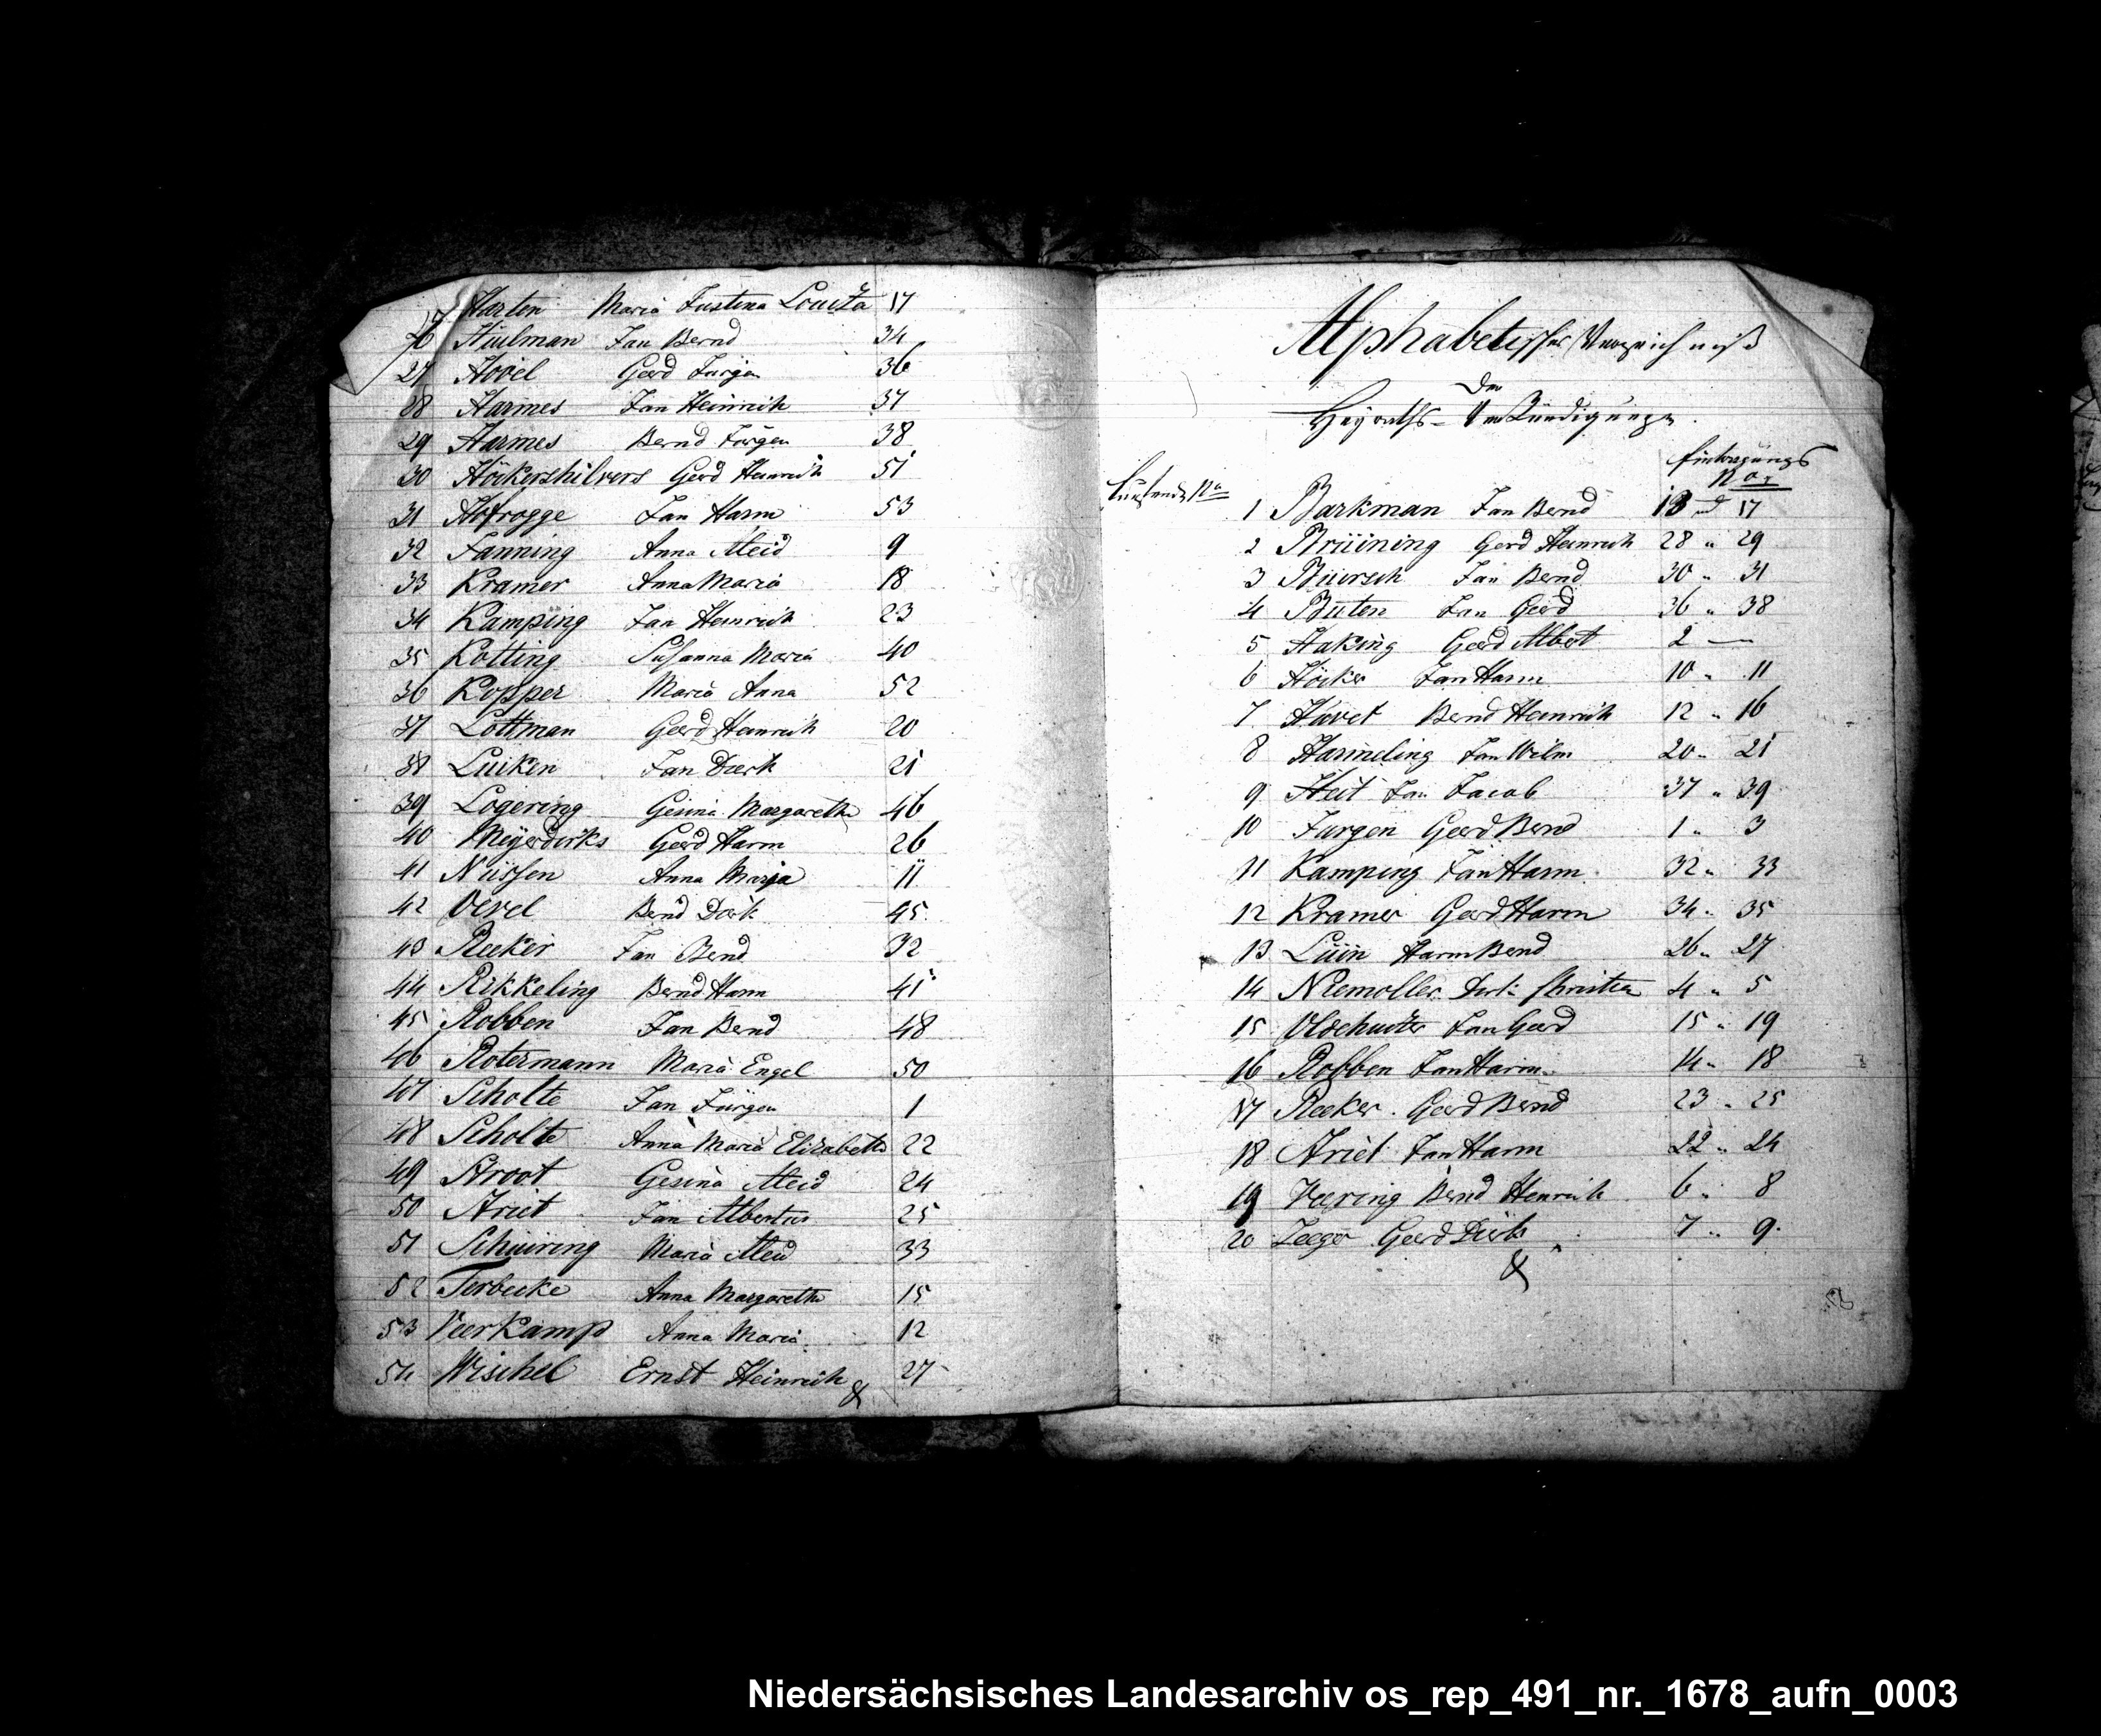 Harten Maria Justina Louiza 17
26 Hüelman Jan Bernd 34
27 Hövel Gerd Jurgen 36
28 Harmes Jan Heinrich 37
29 Harmes Bernd Jürgen 38
30 Höckershilvers Gerd Heinrich 51
31 Hofrogge Jan Harm 53
32 Janning Anna Aleid 9
33 Kramer Anna Maria 18
34 Kamping Jan Heinrich 23
35 Kotting Susanna Maria 40
36 Kopper Maria Anna 52
37 Lottman Gerd Heinrich 20
38 Luiken Jan Dierk 21
39 Logering Gesina Margaretha 46
40 Meijerdirks Gerd Harm 26
41 Nüssen Anna Maria 11
42 Bernd Dierk 45
43 Reeker Jan Bernd 32
44 Rikkeling Bernd Harm 41
45 Robben Jan Bernd 48
46 Rotermann Maria Engel 50
47 Scholte Jan Jürgen 1
48 Scholte Anna Maria Elizabeth 22
49 Stroot Gesina Aleid 24
50 Striet Jan Albertus 25
51 Schüiring Maria Aleid 33
52 Terbecke Anna Margaretha 15
53 Veerkamp Anna Maria 12
54 Wischel Ernst Heinrich 27
Alphabetisches Verzeichniß
Der
Heyraths-Verkündigungen.
Eintragungs
Laufende No Nos
1 Barkman Jan Bernd 13 17
2 Brüining Gerd Heinrich 28 " 29
3 Büirsch Jan Bernd 30 " 31
4 Buten Jan Gerd 36 " 38
5 Haking Gerd Albert 2 —
6 Höcker Jan Harm 10 " 11
7 Bernd Heinrich 12 " 16
8 Harmeling Jan Wilm 20 " 21
9 Jan Jacob 37 " 39
10 Jurgen Gerd Bernd 1 " 3
11 Kamping Jan Harm 32 " 33
12 Kramer Gerd Harm 34 " 35
13 Lüin Harm Bernd 26 " 27
14 Niemoller Christian 4 " 5
15 Jan Gerd 15 " 19
16 Robben Jan Harm 14 " 18
17 Reeker Gerd Bernd 23 " 25
18 Striet Jan Harm 22 " 24
19 Veering Bernd Henrich 6 " 8
20 Zeeger Gerd Dirk 7 " 9
Niedersächsisches Landesarchiv os_rep_491_nr._1678_aufn_0003